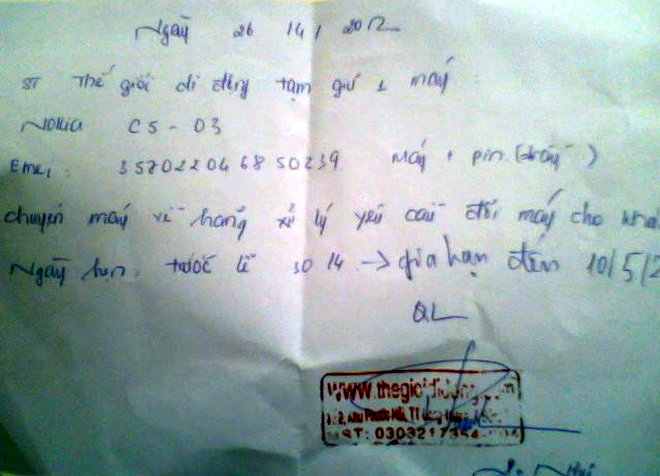 Ngày 26 /4 / 2012
ST Thế giới di động tạm giữ 1 máy
Nokia C5 - 03
Emei: 357022046850239 Máy + pin (trầy)
chuyển máy về hãng xử lý yêu cầu đổi máy cho
Ngày hẹn: trước lễ 30/4 -> gia hạn đến 10/5/2
QL
www.thegioididong.com
MST: 0303217354-